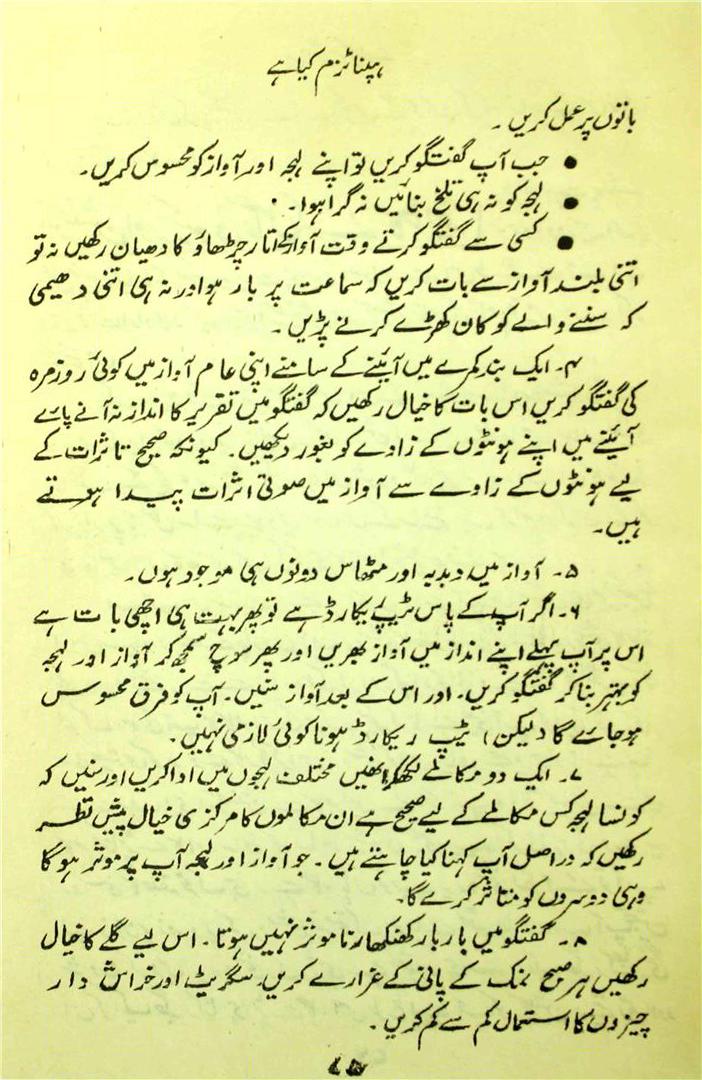 ہپناٹزم کیا ہے
باتوں پر عمل کریں ۔
● جب آپ گفتگو کریں تو اپنے لہجہ اور آواز کو محسوس کریں۔
● لہجہ کو نہ ہی تلخ بنائیں نہ گرا ہوا۔
● کسی سے گفتگو کرتے وقت آواز کے اتار چڑھاؤ کا دھیان رکھیں نہ تو
اتنی بلند آواز سے بات کریں کہ سماعت پر بار ہو اور نہ ہی اتنی دھیمی
کہ سننے والے کو کان کھڑے کرنے پڑیں ۔
۴۔ ایک بند کمرے میں آئینے کے سامنے اپنی عام آواز میں کوئی روزمرہ
کی گفتگو کریں اس بات کا خیال رکھیں کہ گفتگو میں تقریر کا انداز نہ آنے پائے
آئینے میں اپنے ہونٹوں کے زاویے کو بغور دیکھیں۔ کیونکہ صحیح تاثرات کے
لیے ہونٹوں کے زاویے سے آواز میں صوتی اثرات پیدا ہوتے
ہیں۔
۵۔ آواز میں دبدبہ اور مٹھاس دونوں ہی موجود ہوں۔
۶۔ اگر آپ کے پاس ٹیپ ریکارڈ ہے تو پھر بہت ہی اچھی بات ہے
اس پر آپ پہلے اپنے انداز میں آواز بھریں اور پھر سوچ سمجھ کر آواز اور لہجہ
کو بہتر بنا کر گفتگو کریں۔ اور اس کے بعد آواز سنیں۔ آپ کو فرق محسوس
ہو جائے گا (لیکن) ٹیپ ریکارڈ ہونا کوئی لازمی نہیں۔
۷۔ ایک دو مکالمے لکھ کر انھیں مختلف لہجوں میں ادا کریں اور سنیں کہ
کونسا لہجہ کس مکالمے کے لیے صحیح ہے ان مکالموں کا مرکزی خیال پیش نظر
رکھیں کہ دراصل آپ کہنا کیا چاہتے ہیں ۔ جو آواز اور لہجہ آپ پر موثر ہوگا
وہی دوسروں کو متاثر کرے گا۔
۸۔ گفتگو میں بار بار کھنکھارنا موثر نہیں ہوتا ۔ اس لیے گلے کا خیال
رکھیں ہر صبح نمک کے پانی کے غرارے کریں۔ سگریٹ اور خراش دار
چیزوں کا استعمال کم سے کم کریں ۔